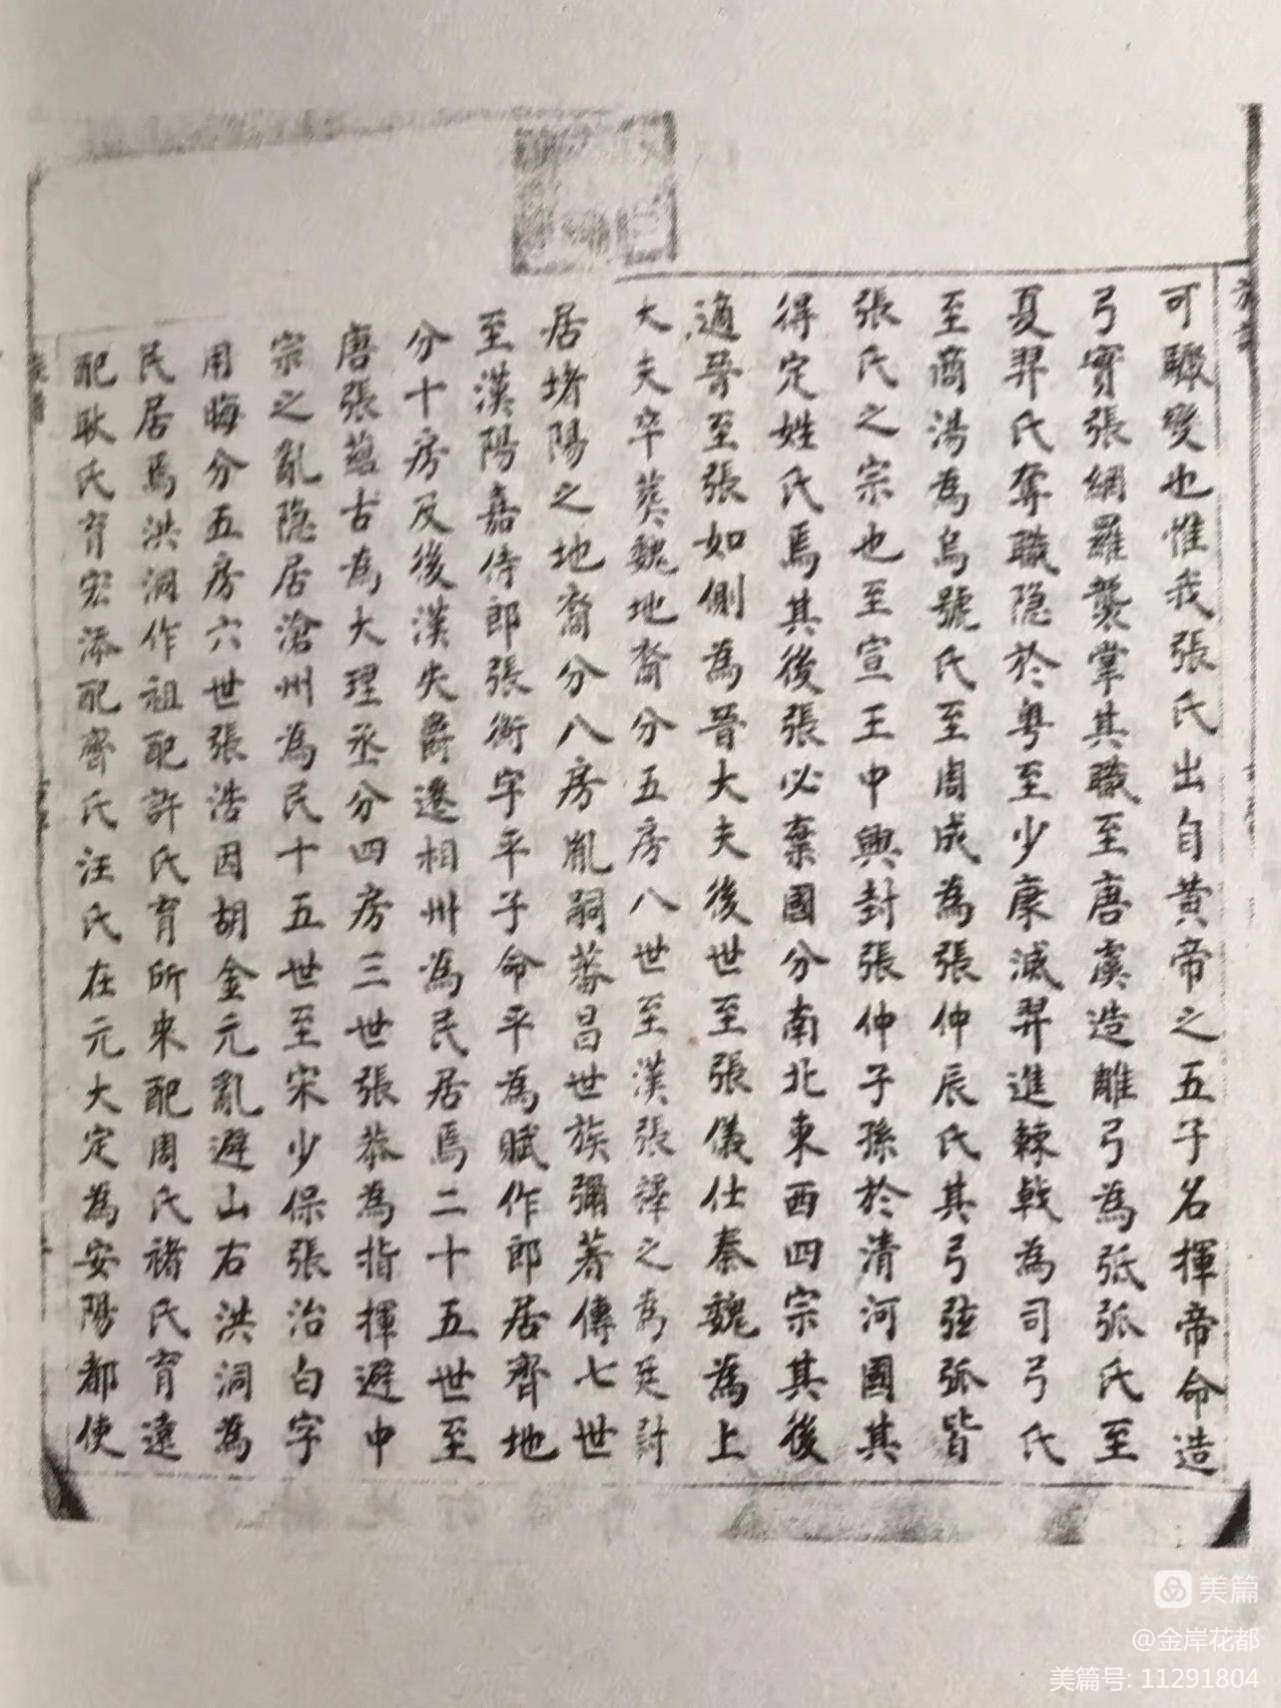 可驟變也惟我張氏出自黃帝之五子名揮帝命造
弓實張網羅襲掌其職至唐虞造雕弓為弤弧氏至
夏羿氏奪職隱於粤至少康滅羿進棘戟為司弓氏
至商湯為烏號氏至周成為張仲辰氏其弓弦弧皆
張氏之宗也至宣王中興封張仲子孫於清河國其
得定姓氏焉其後張必棄國分南北東西四宗其後
適晉至張如側為晉大夫後世至張儀仕秦魏為上
大夫卒葬魏地裔分五房八世至漢張澤之為廷尉
居堵陽之地裔分八房胤嗣蕃昌世族彌著傳七世
至漢陽嘉侍郎張衡字平子命平為賦作郎居齊地
分十房及後漢失爵遷相州為民居焉二十五世至
唐張蘊古為大理丞分四房三世張恭為指揮避中
宗之亂隐居滄州為民十五世至宋少保張治白字
用晦分五房六世張浩因胡金元亂避山右洪洞為
民居焉洪洞作祖配許氏育所來配周氏褚氏育遠
配耿氏育宏添配齊氏汪氏在元大定為安陽都使
美篇
@金岸花都
美篇号: 11291804